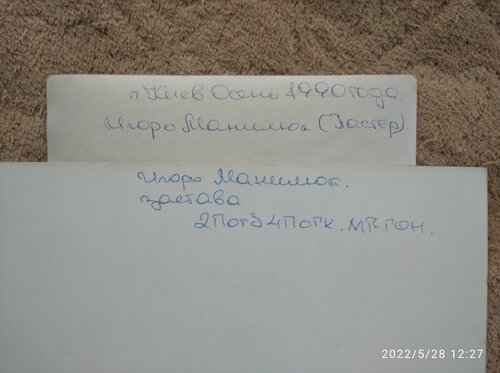 г Киев Осень 1990 года.
Игорь Манилюк (Кастер)
Игорь Манилюк.
застава
2ПогЗ 4ПоГК. МП ГОН.
2022/5/28 12:27